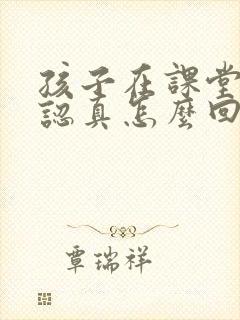 孩子在課堂
認真怎麼回
覃瑞祥